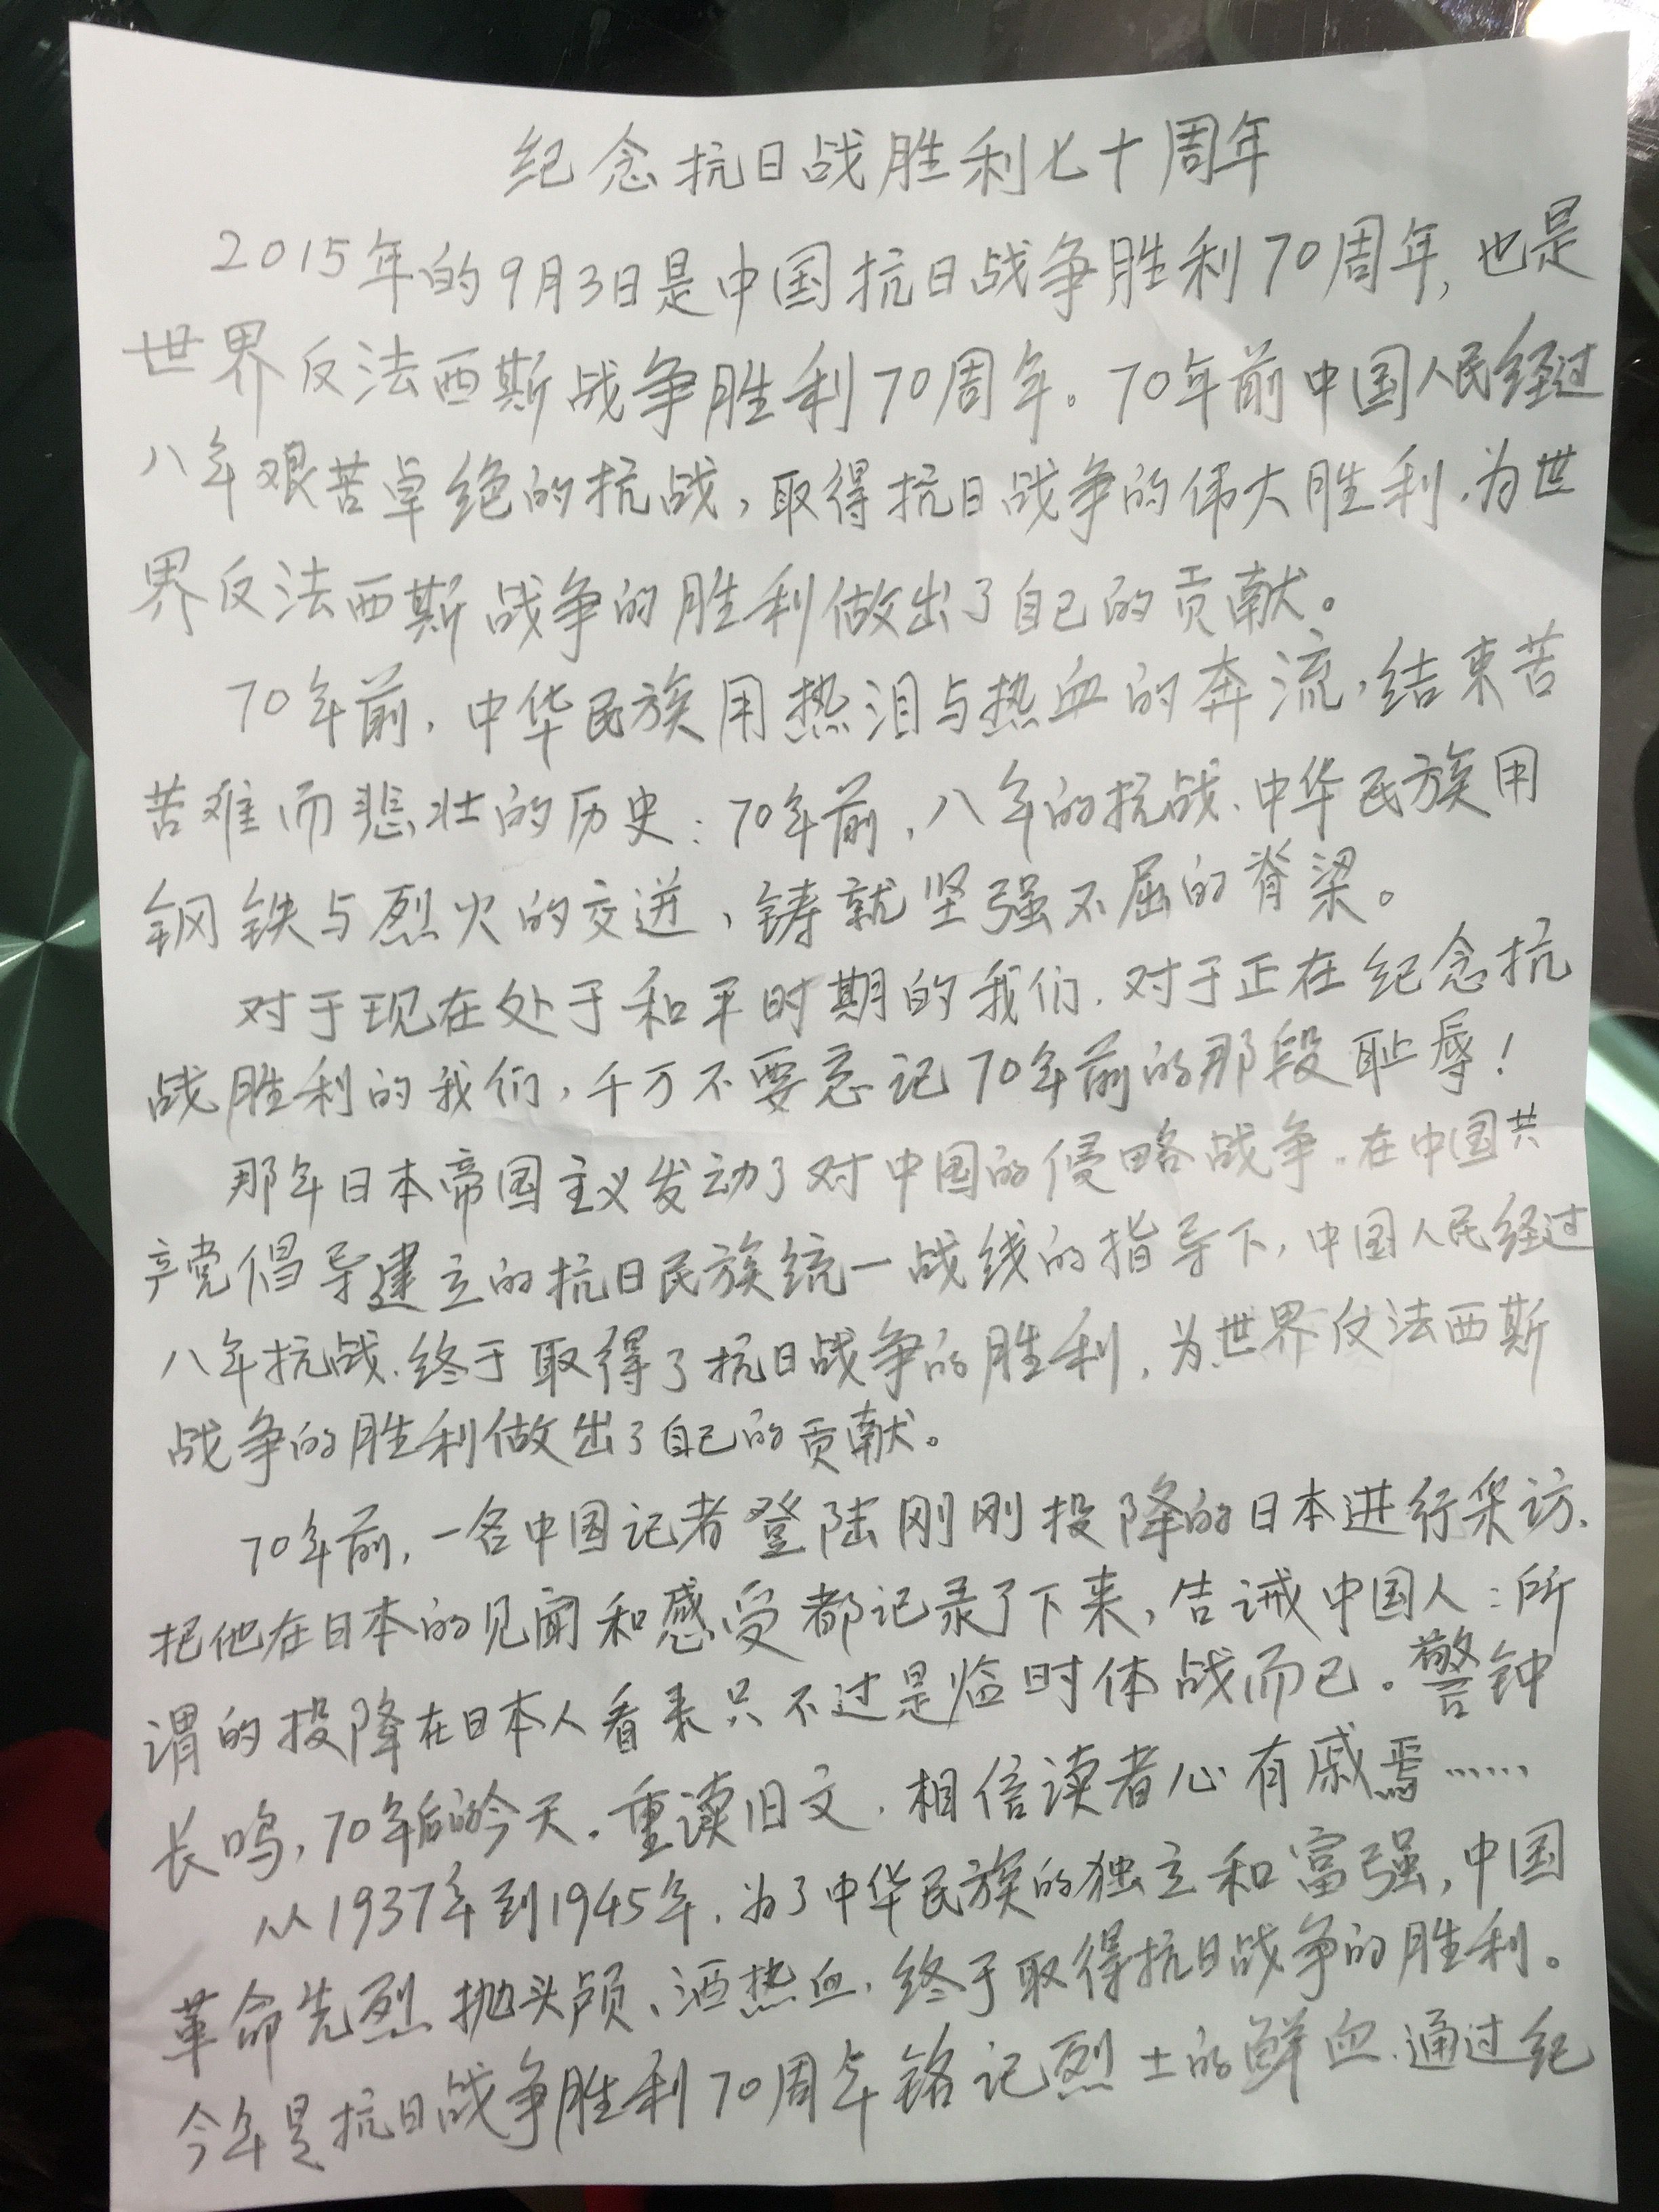 纪念抗日战胜利七十周年
2015年的9月3日是中国抗日战争胜利70周年,也是
世界反法西斯战争胜利70周年。70年前中国人民经过
八年艰苦卓绝的抗战,取得抗日战争的伟大胜利,为世
界反法西斯战争的胜利做出了自己的贡献。
70年前,中华民族用热泪与热血的奔流,结束苦
苦难而悲壮的历史:70年前,八年的抗战、中华民族用
钢铁与烈火的交迸,铸就坚强不屈的脊梁。
对于现在处于和平时期的我们,对于正在纪念抗
战胜利的我们,千万不要忘记70年前的那段耻辱!
那年日本帝国主义发动了对中国的侵略战争。在中国共
产党倡导建立的抗日民族统一战线的指导下,中国人民经过
八年抗战,终于取得了抗日战争的胜利,为世界反法西斯
战争的胜利做出了自己的贡献。
70年前,一名中国记者登陆刚刚投降的日本进行采访,
把他在日本的见闻和感受都记录了下来,告诫中国人:所
谓的投降在日本人看来只不过是临时休战而已。警钟
长鸣,70年后的今天。重读旧文,相信读者心有戚焉……
从1937年到1945年,为了中华民族的独立和富强,中国
革命先烈抛头颅、洒热血,终于取得抗日战争的胜利。
今年是抗日战争胜利70周年铭记烈士的鲜血,通过纪